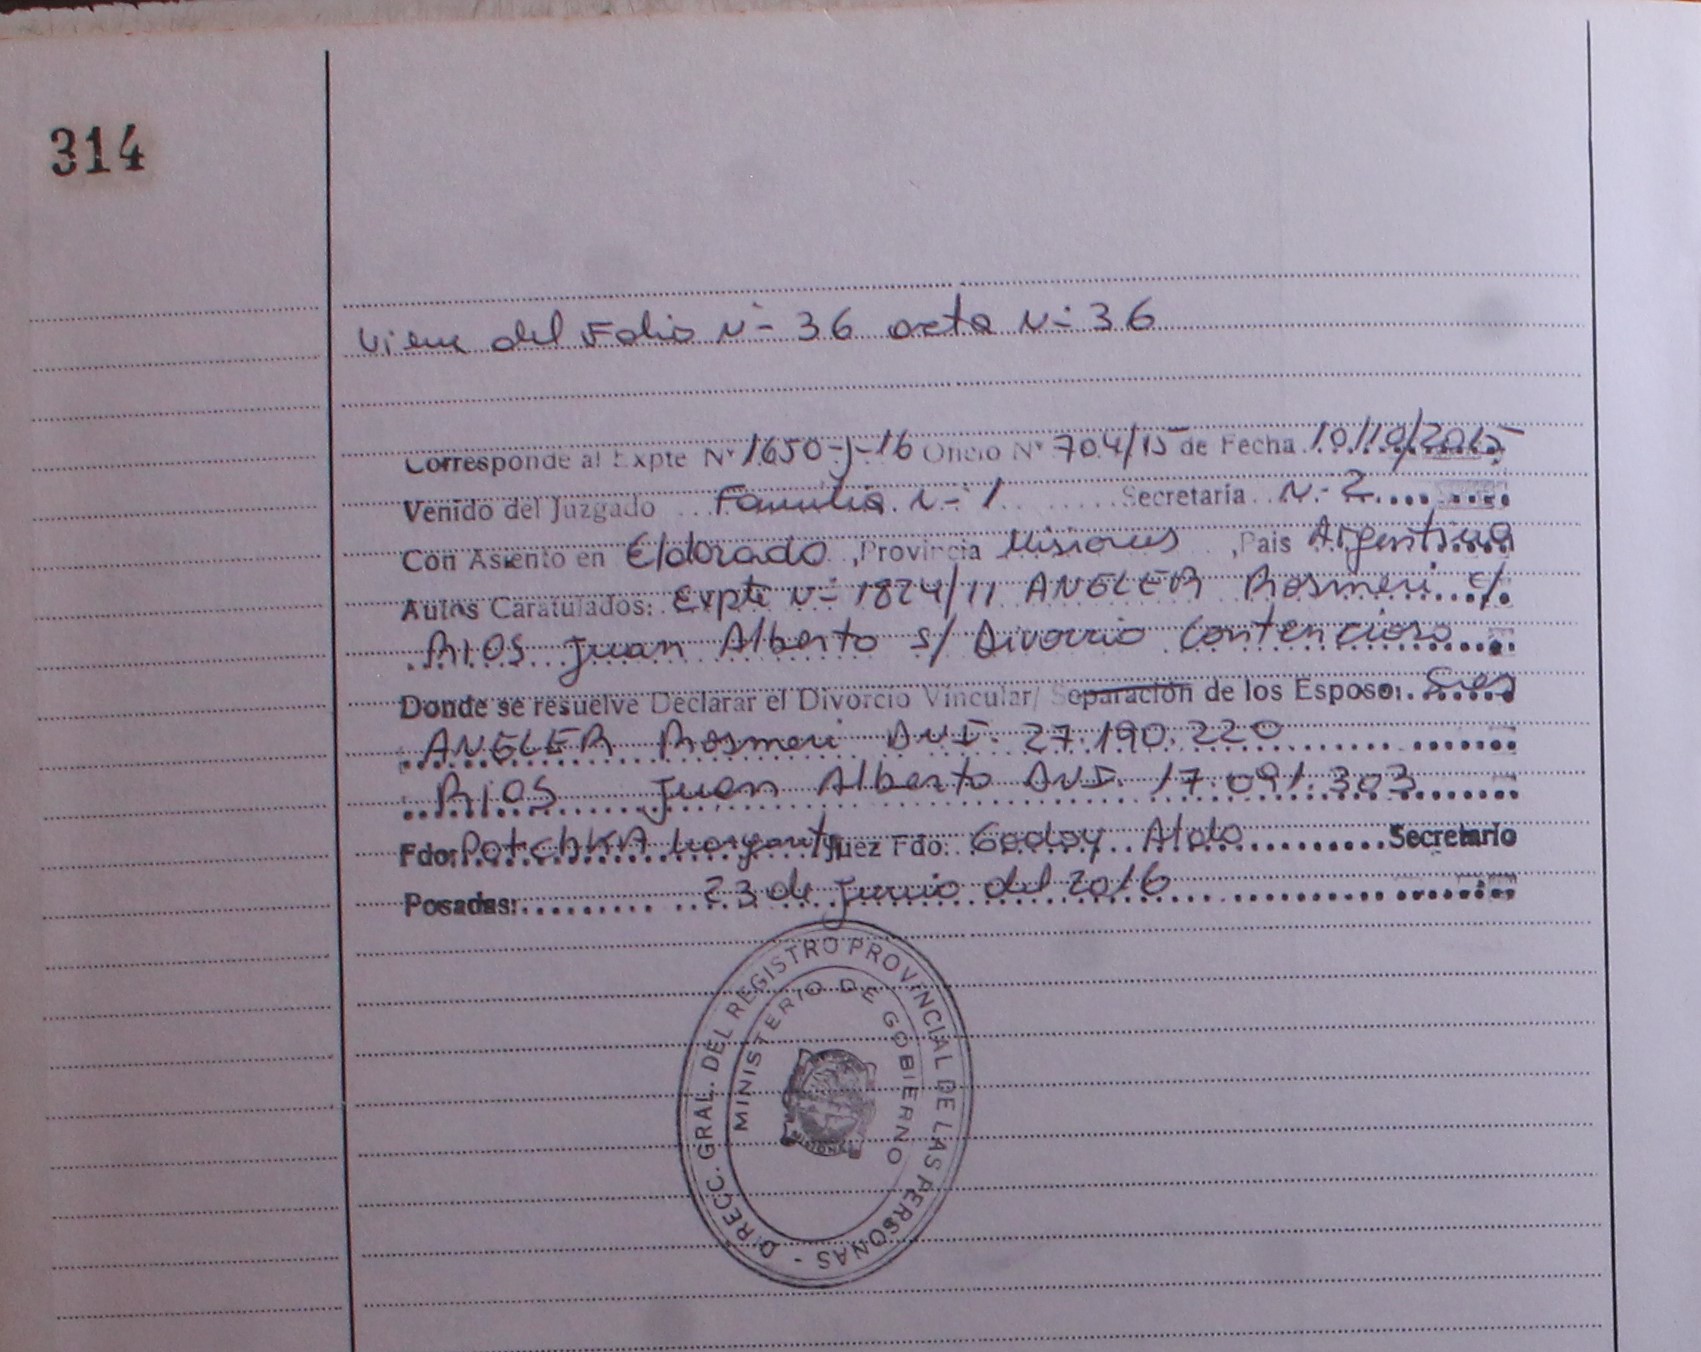 314
Viene del Folio Nº 36 acta Nº 36
Corresponde al Expte Nº 1650-J-16 Oficio Nº 704/15 de Fecha 10/10/2015
Venido del Juzgado Familia Nº 1 Secretaría Nº 2
Con Asiento en Eldorado, Provincia Misiones, País Argentina
Autos Caratulados: Expte Nº 1824/11 ANGLER Rosmeri c/
RIOS Juan Alberto s/ Divorcio Contencioso
Donde se resuelve Declarar el Divorcio Vincular/ Separación de los Esposos: Sres
ANGLER Rosmeri DNI. 27.190.220
RIOS Juan Alberto DNI. 17.091.303
Fdo: Juez Fdo: Godoy Secretario
Posadas: 23 de Junio del 2016
DIRECC. GRAL. DEL REGISTRO PROVINCIAL DE LAS PERSONAS -
MINISTERIO DE GOBIERNO
MISIONES